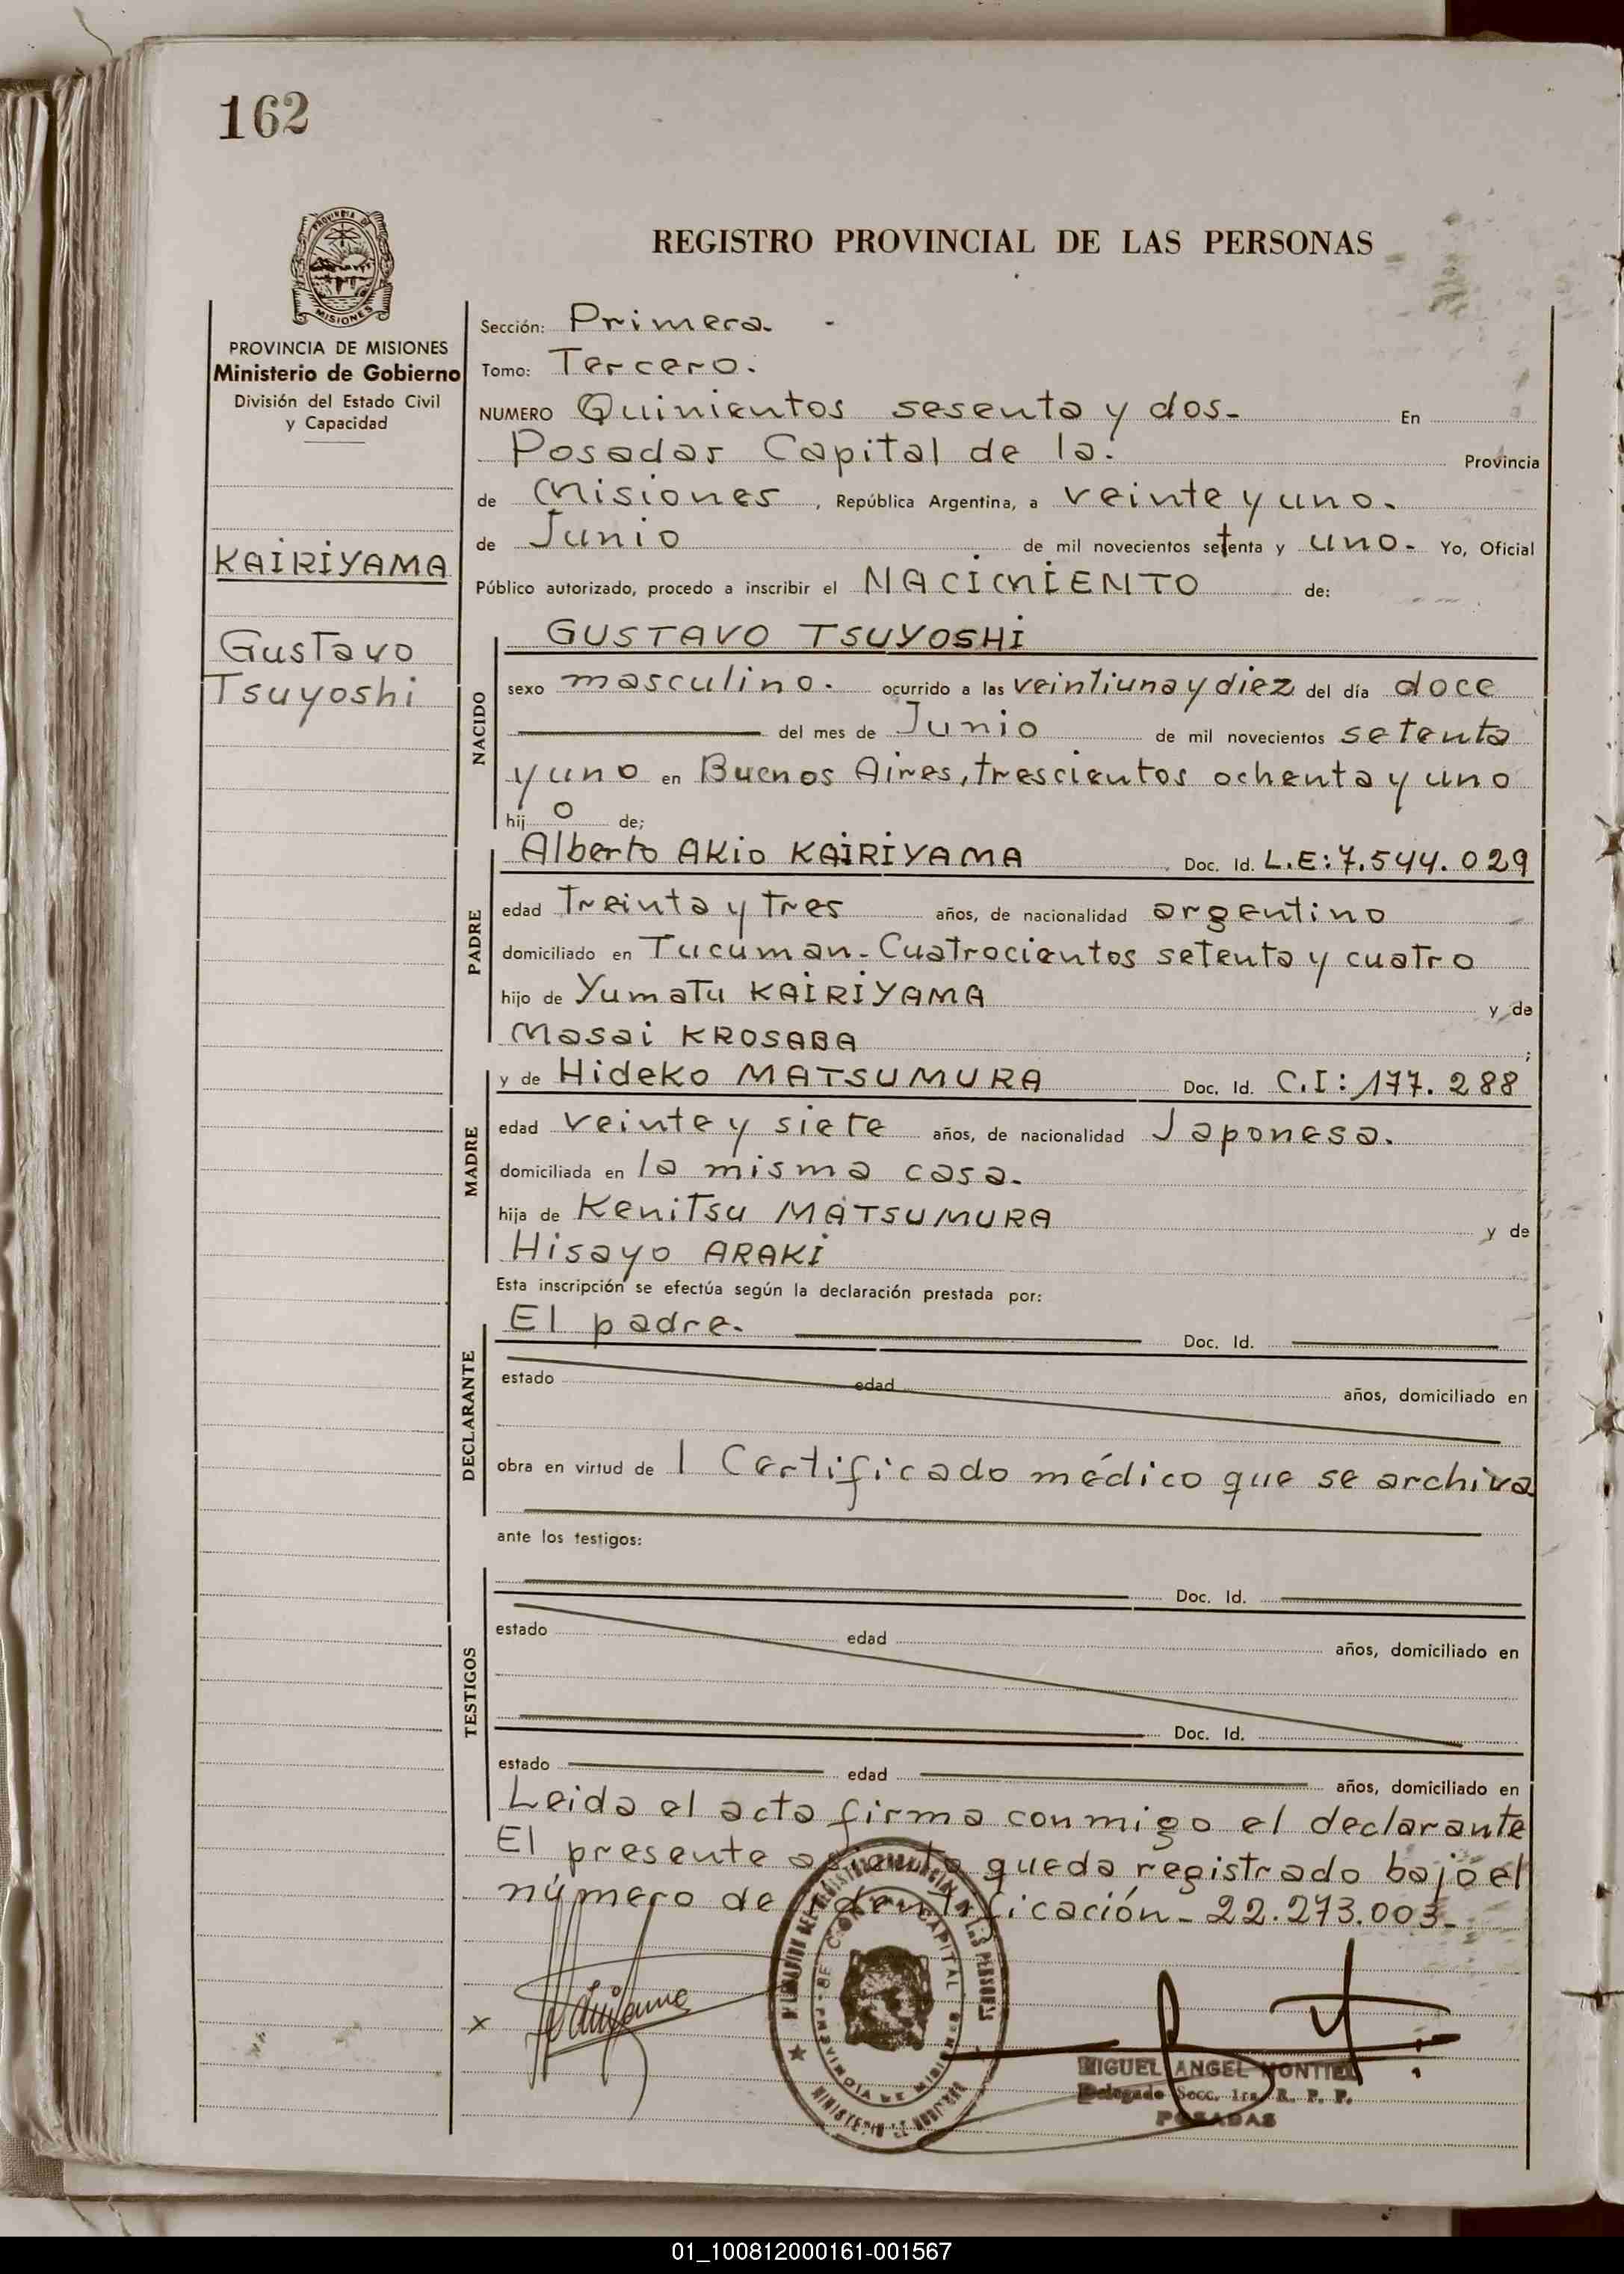 162
PROVINCIA DE
MISIONES
REGISTRO PROVINCIAL DE LAS PERSONAS
PROVINCIA DE MISIONES
Ministerio de Gobierno
División del Estado Civil
y Capacidad
KAIRIYAMA
Gustavo
Tsuyoshi
Sección: Primera. -
Tomo: Tercero.
NUMERO Quinientos sesenta y dos- En
Posadas Capital de la. Provincia
de Misiones, República Argentina, a veinte y uno.
de Junio de mil novecientos setenta y uno- Yo, Oficial
Público autorizado, procedo a inscribir el NACIMIENTO de:
NACIDO
GUSTAVO TSUYOSHI
sexo masculino. ocurrido a las veintiuna y diez del día doce
del mes de Junio de mil novecientos setenta
y uno en Buenos Aires, trescientos ochenta y uno
hij o de;
PADRE
Alberto Akio KAIRIYAMA Doc. Id. L.E: 7.544.029
edad Treinta y tres años, de nacionalidad argentino
domiciliado en Tucuman- Cuatrocientos setenta y cuatro
hijo de Yumatu KAIRIYAMA y de
Masai KROSABA ;
MADRE
y de Hideko MATSUMURA Doc. Id. C.I: 177.288
edad veinte y siete años, de nacionalidad Japonesa.
domiciliada en la misma casa.
hija de Kenitsu MATSUMURA y de
Hisayo ARAKI
Esta inscripción se efectúa según la declaración prestada por:
DECLARANTE
El padre. Doc. Id.
estado edad años, domiciliado en
obra en virtud de 1 Certificado médico que se archiva
ante los testigos:
TESTIGOS
Doc. Id.
estado edad años, domiciliado en
Doc. Id.
estado edad años, domiciliado en
Leida el acta firma conmigo el declarante
El presente asiento queda registrado bajo el
número de identificación- 22.273.003-
x
MIGUEL ANGEL MONTIEL
Delegado Secc. 1ra. R. P. P.
POSADAS
01_100812000161-001567